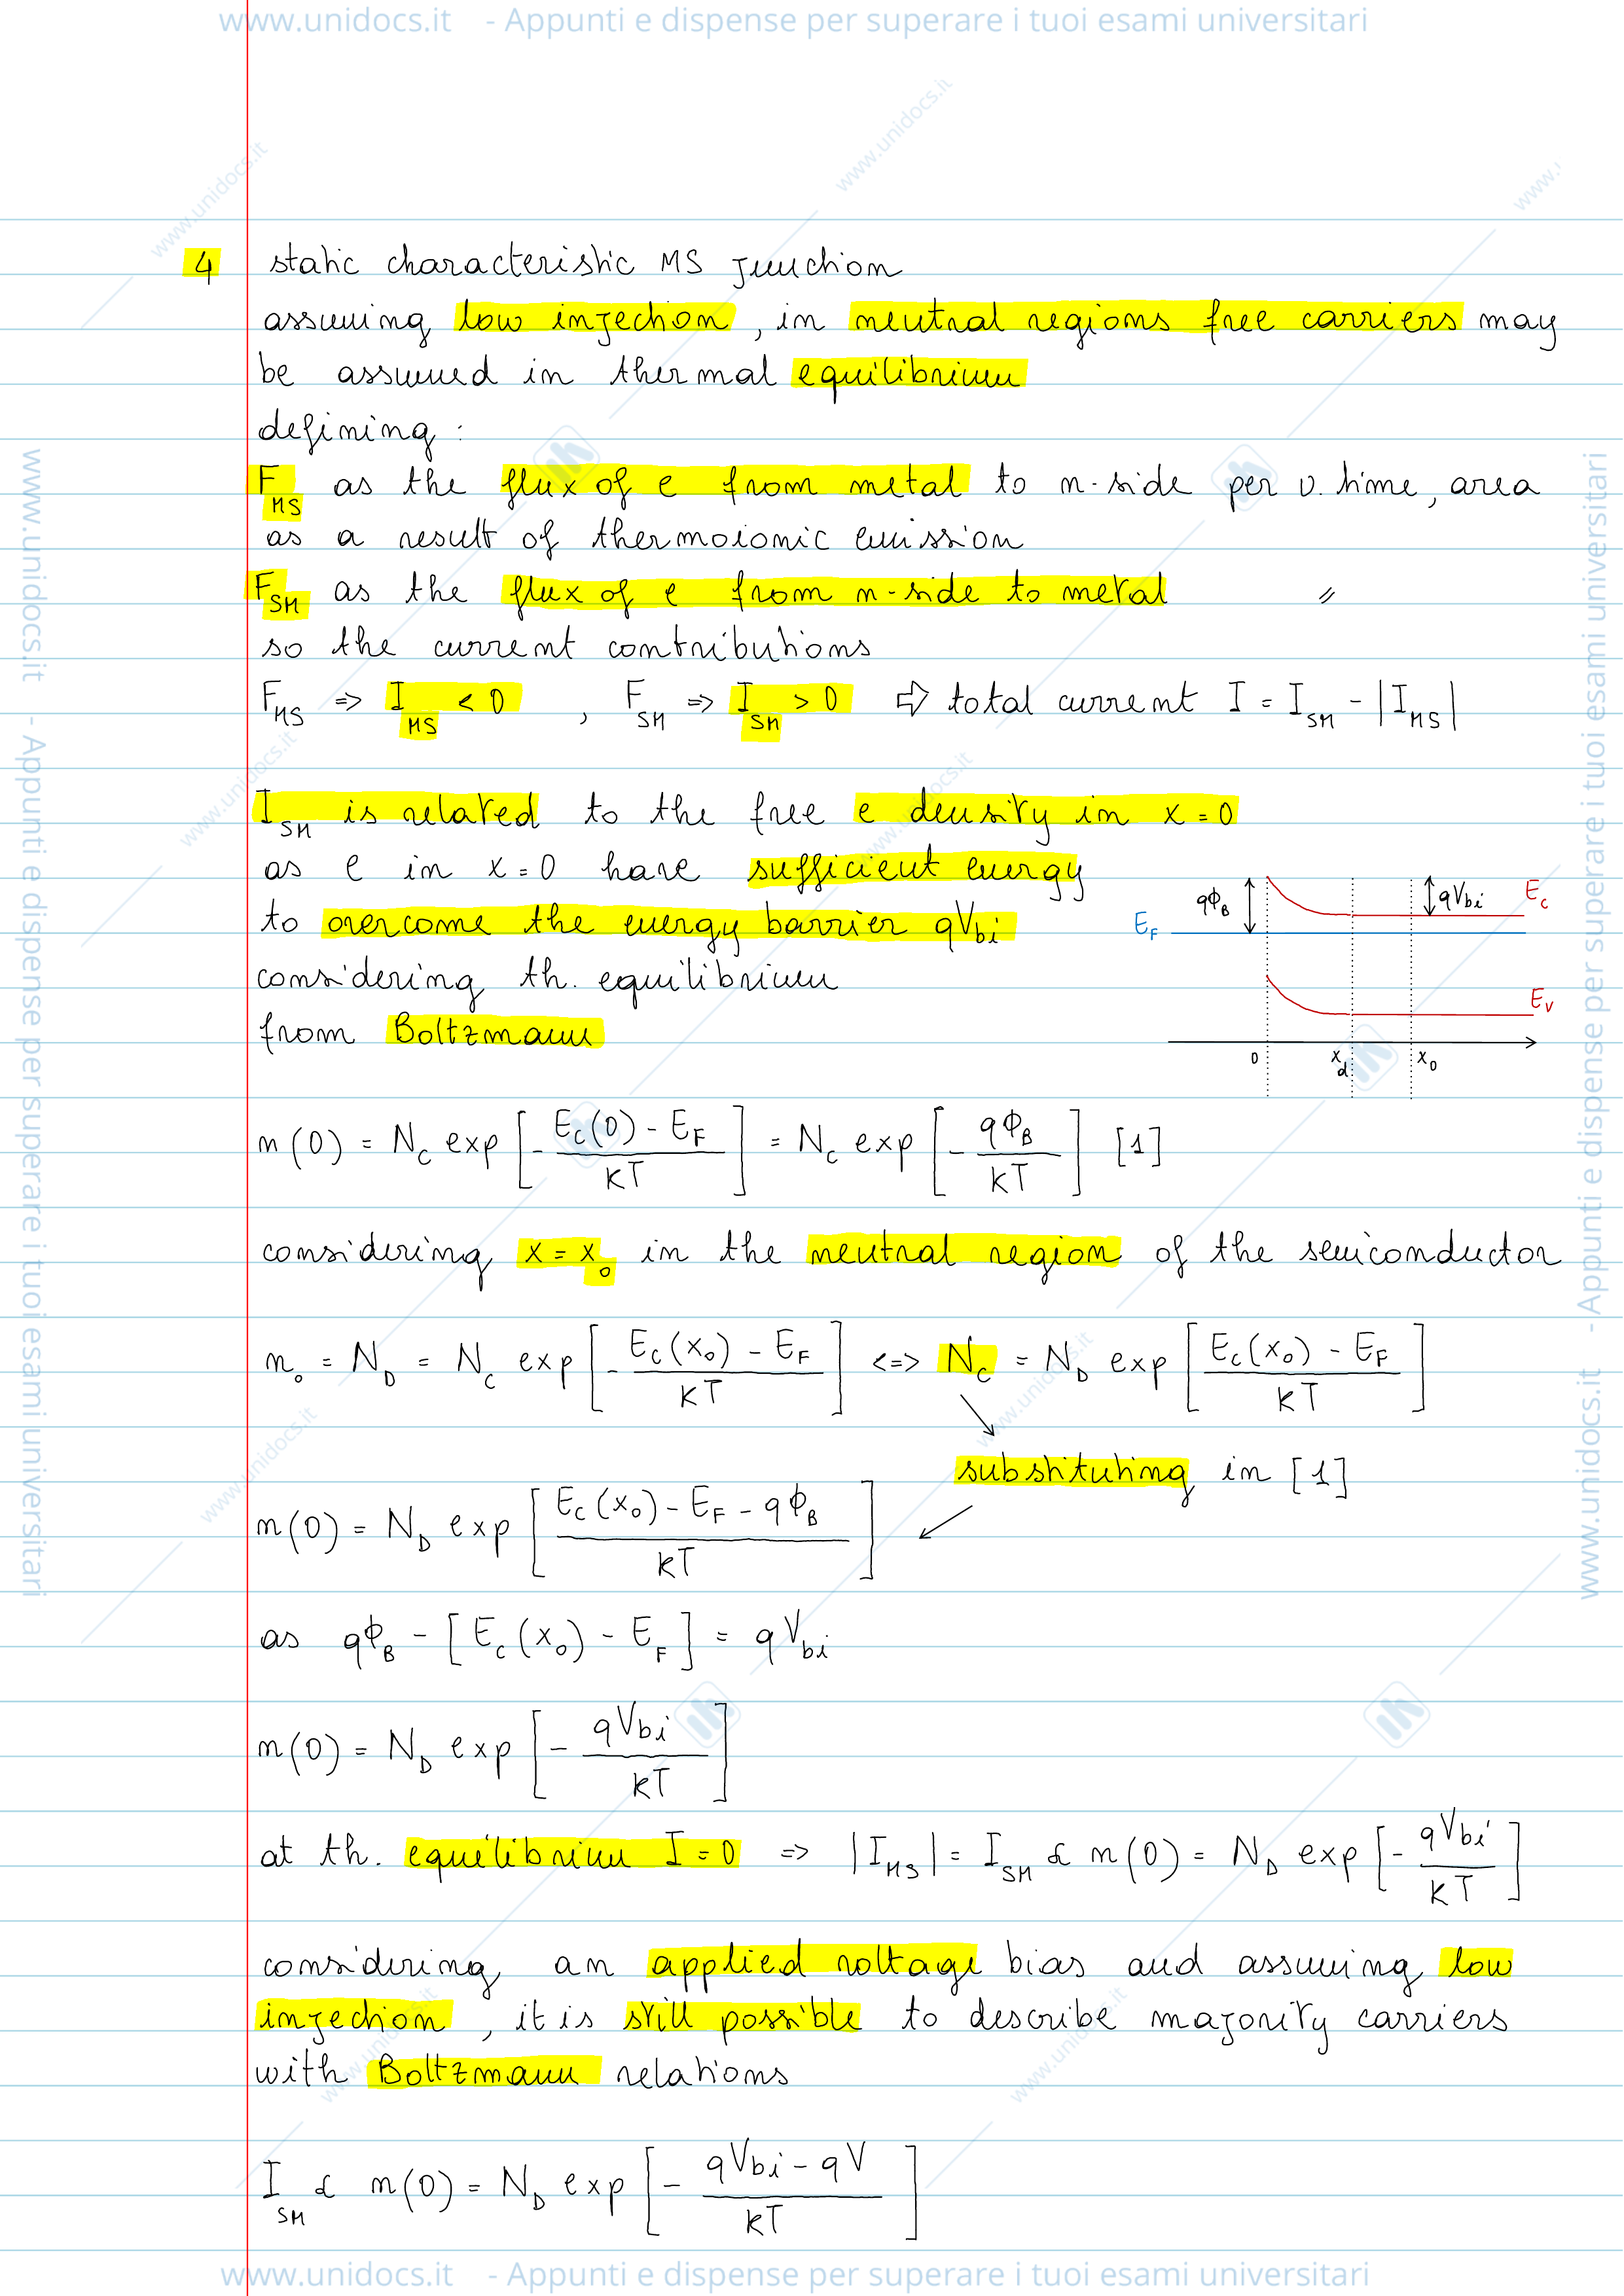 www.unidocs.it - Appunti e dispense per superare i tuoi esami universitari
4 static characteristic MS junction
assuming low injection, in neutral regions free carriers may
be assumed in thermal equilibrium
defining :
F_MS as the flux of e from metal to n-side per u. time, area
as a result of thermoionic emission
F_SM as the flux of e from n-side to metal //
so the current contributions
F_MS => I_MS < 0 , F_SM => I_SM > 0 ⇨ total current I = I_SM - |I_MS|
I_SM is related to the free e density in x = 0
as e in x = 0 have sufficient energy
to overcome the energy barrier qV_bi
considering th. equilibrium
from Boltzmann
qΦ_B qV_bi E_C
E_F
E_V
0 x_d x_0
n(0) = N_C exp [- (E_C(0) - E_F)/kT] = N_C exp [- qΦ_B/kT] [1]
considering x = x_0 in the neutral region of the semiconductor
n_0 = N_D = N_C exp [- (E_C(x_0) - E_F)/kT] <=> N_C = N_D exp [(E_C(x_0) - E_F)/kT]
substituting in [1]
n(0) = N_D exp [(E_C(x_0) - E_F - qΦ_B)/kT]
as qΦ_B - [E_C(x_0) - E_F] = qV_bi
n(0) = N_D exp [- qV_bi/kT]
at th. equilibrium I = 0 => |I_MS| = I_SM ∝ n(0) = N_D exp [- qV_bi/kT]
considering an applied voltage bias and assuming low
injection, it is still possible to describe majority carriers
with Boltzmann relations
I_SM ∝ n(0) = N_D exp [- (qV_bi - qV)/kT]
www.unidocs.it - Appunti e dispense per superare i tuoi esami universitari
www.unidocs.it - Appunti e dispense per superare i tuoi esami universitari
www.unidocs.it - Appunti e dispense per superare i tuoi esami universitari